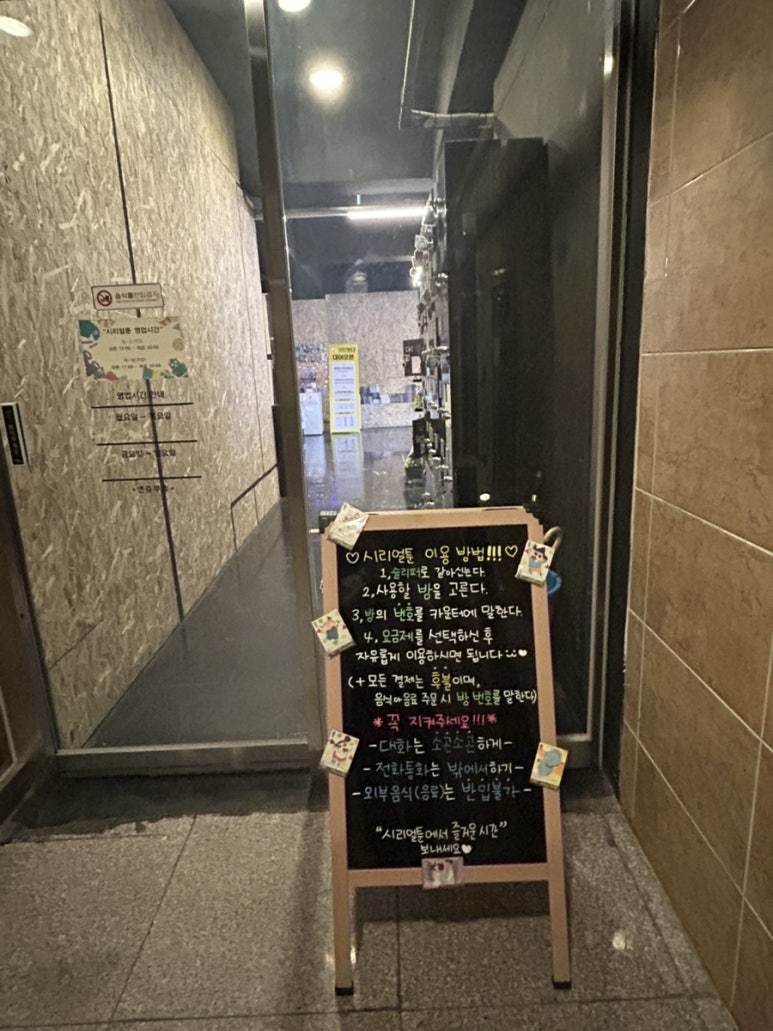 음식물반입금지
"시리얼툰 영업시간"
영업시간 안내
대여오픈
♡시리얼툰 이용 방법!!!♡
1,슬리퍼로 갈아신는다.
2,사용할 방을 고른다.
3,방의 번호를 카운터에 말한다.
4, 요금제를 선택하신 후
자유롭게 이용하시면 됩니다
(+모든 결제는 후불이며,
음식&음료 주문 시 방 번호를 말한다)
*꼭 지켜주세요!!!*
-대화는 소곤소곤하게-
-전화통화는 밖에서하기-
-외부음식(음료)는 반입불가-
"시리얼툰에서 즐거운시간"
보내세요♥